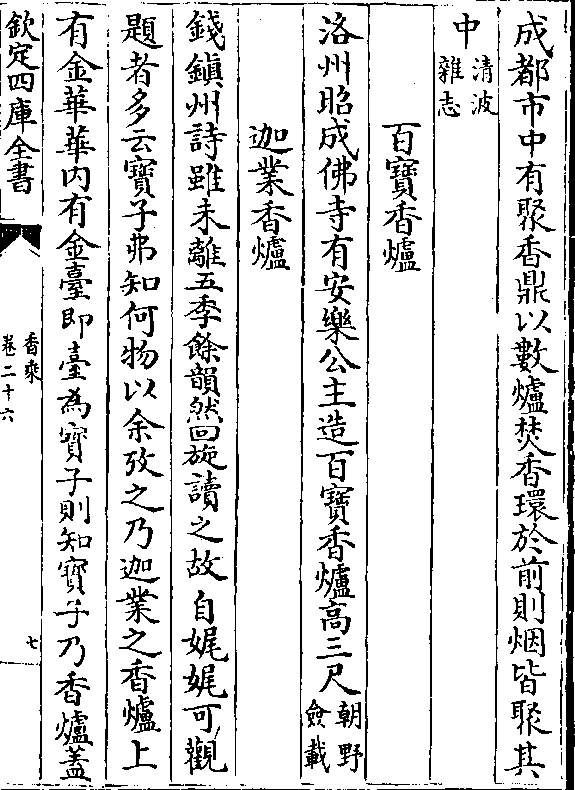 成都市中有聚香鼎以數爐焚香環於前則烟皆聚其
中清波雜志
百寶香爐
洛州昭成佛寺有安樂公主造百寶香爐高三尺朝野僉載
迦業香爐
錢鎮州詩雖未離五季餘韻然回旋讀之故自娓娓可觀
題者多云寶子弗知何物以余攷之乃迦業之香爐上
有金華華内有金臺即臺為寶子則知寶子乃香爐蓋
欽定四庫全書
香乘
卷二十六
七